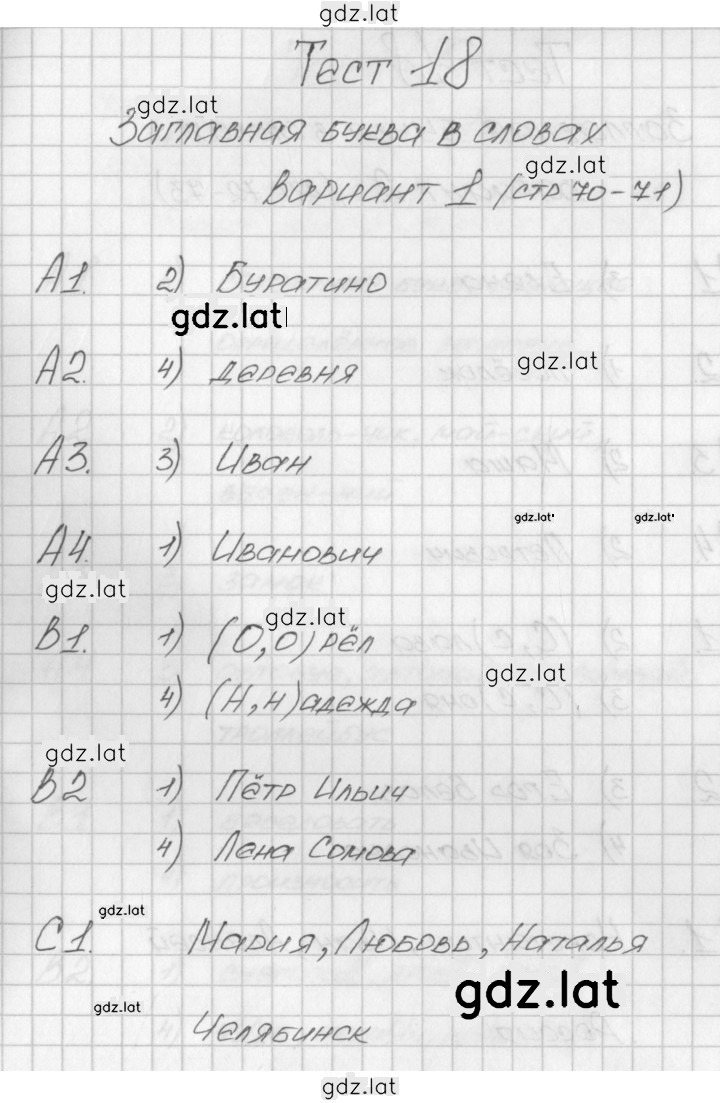 gdz.lat
Тест 18
gdz.lat
Заглавная буква в словах
gdz.lat
Вариант 1 (стр 70-71)
А1. 2) Буратино
gdz.lat
А2. 4) деревня gdz.lat
А3. 3) Иван
gdz.lat gdz.lat
А4. 1) Иванович
gdz.lat
gdz.lat
В1. 1) (О,о)рёл
gdz.lat
4) (Н,н)адежда
gdz.lat
В2 1) Пётр Ильич
4) Лена Сомова
gdz.lat
С1. Мария, Любовь, Наталья
gdz.lat
gdz.lat
Челябинск
gdz.lat